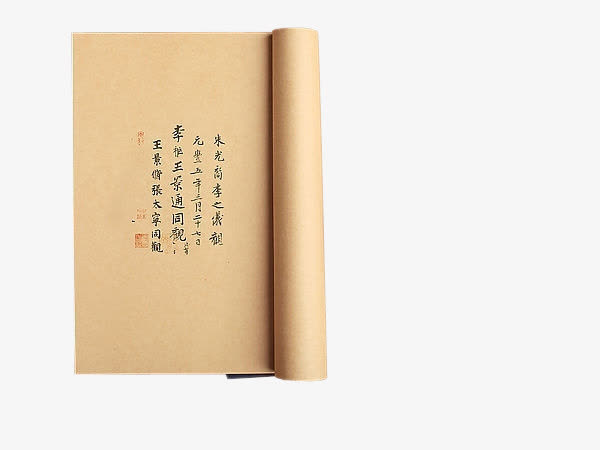 朱光裔李之儀觀
元豐五年三月二十七日
李秬王景通同觀
王景脩張太寧同觀